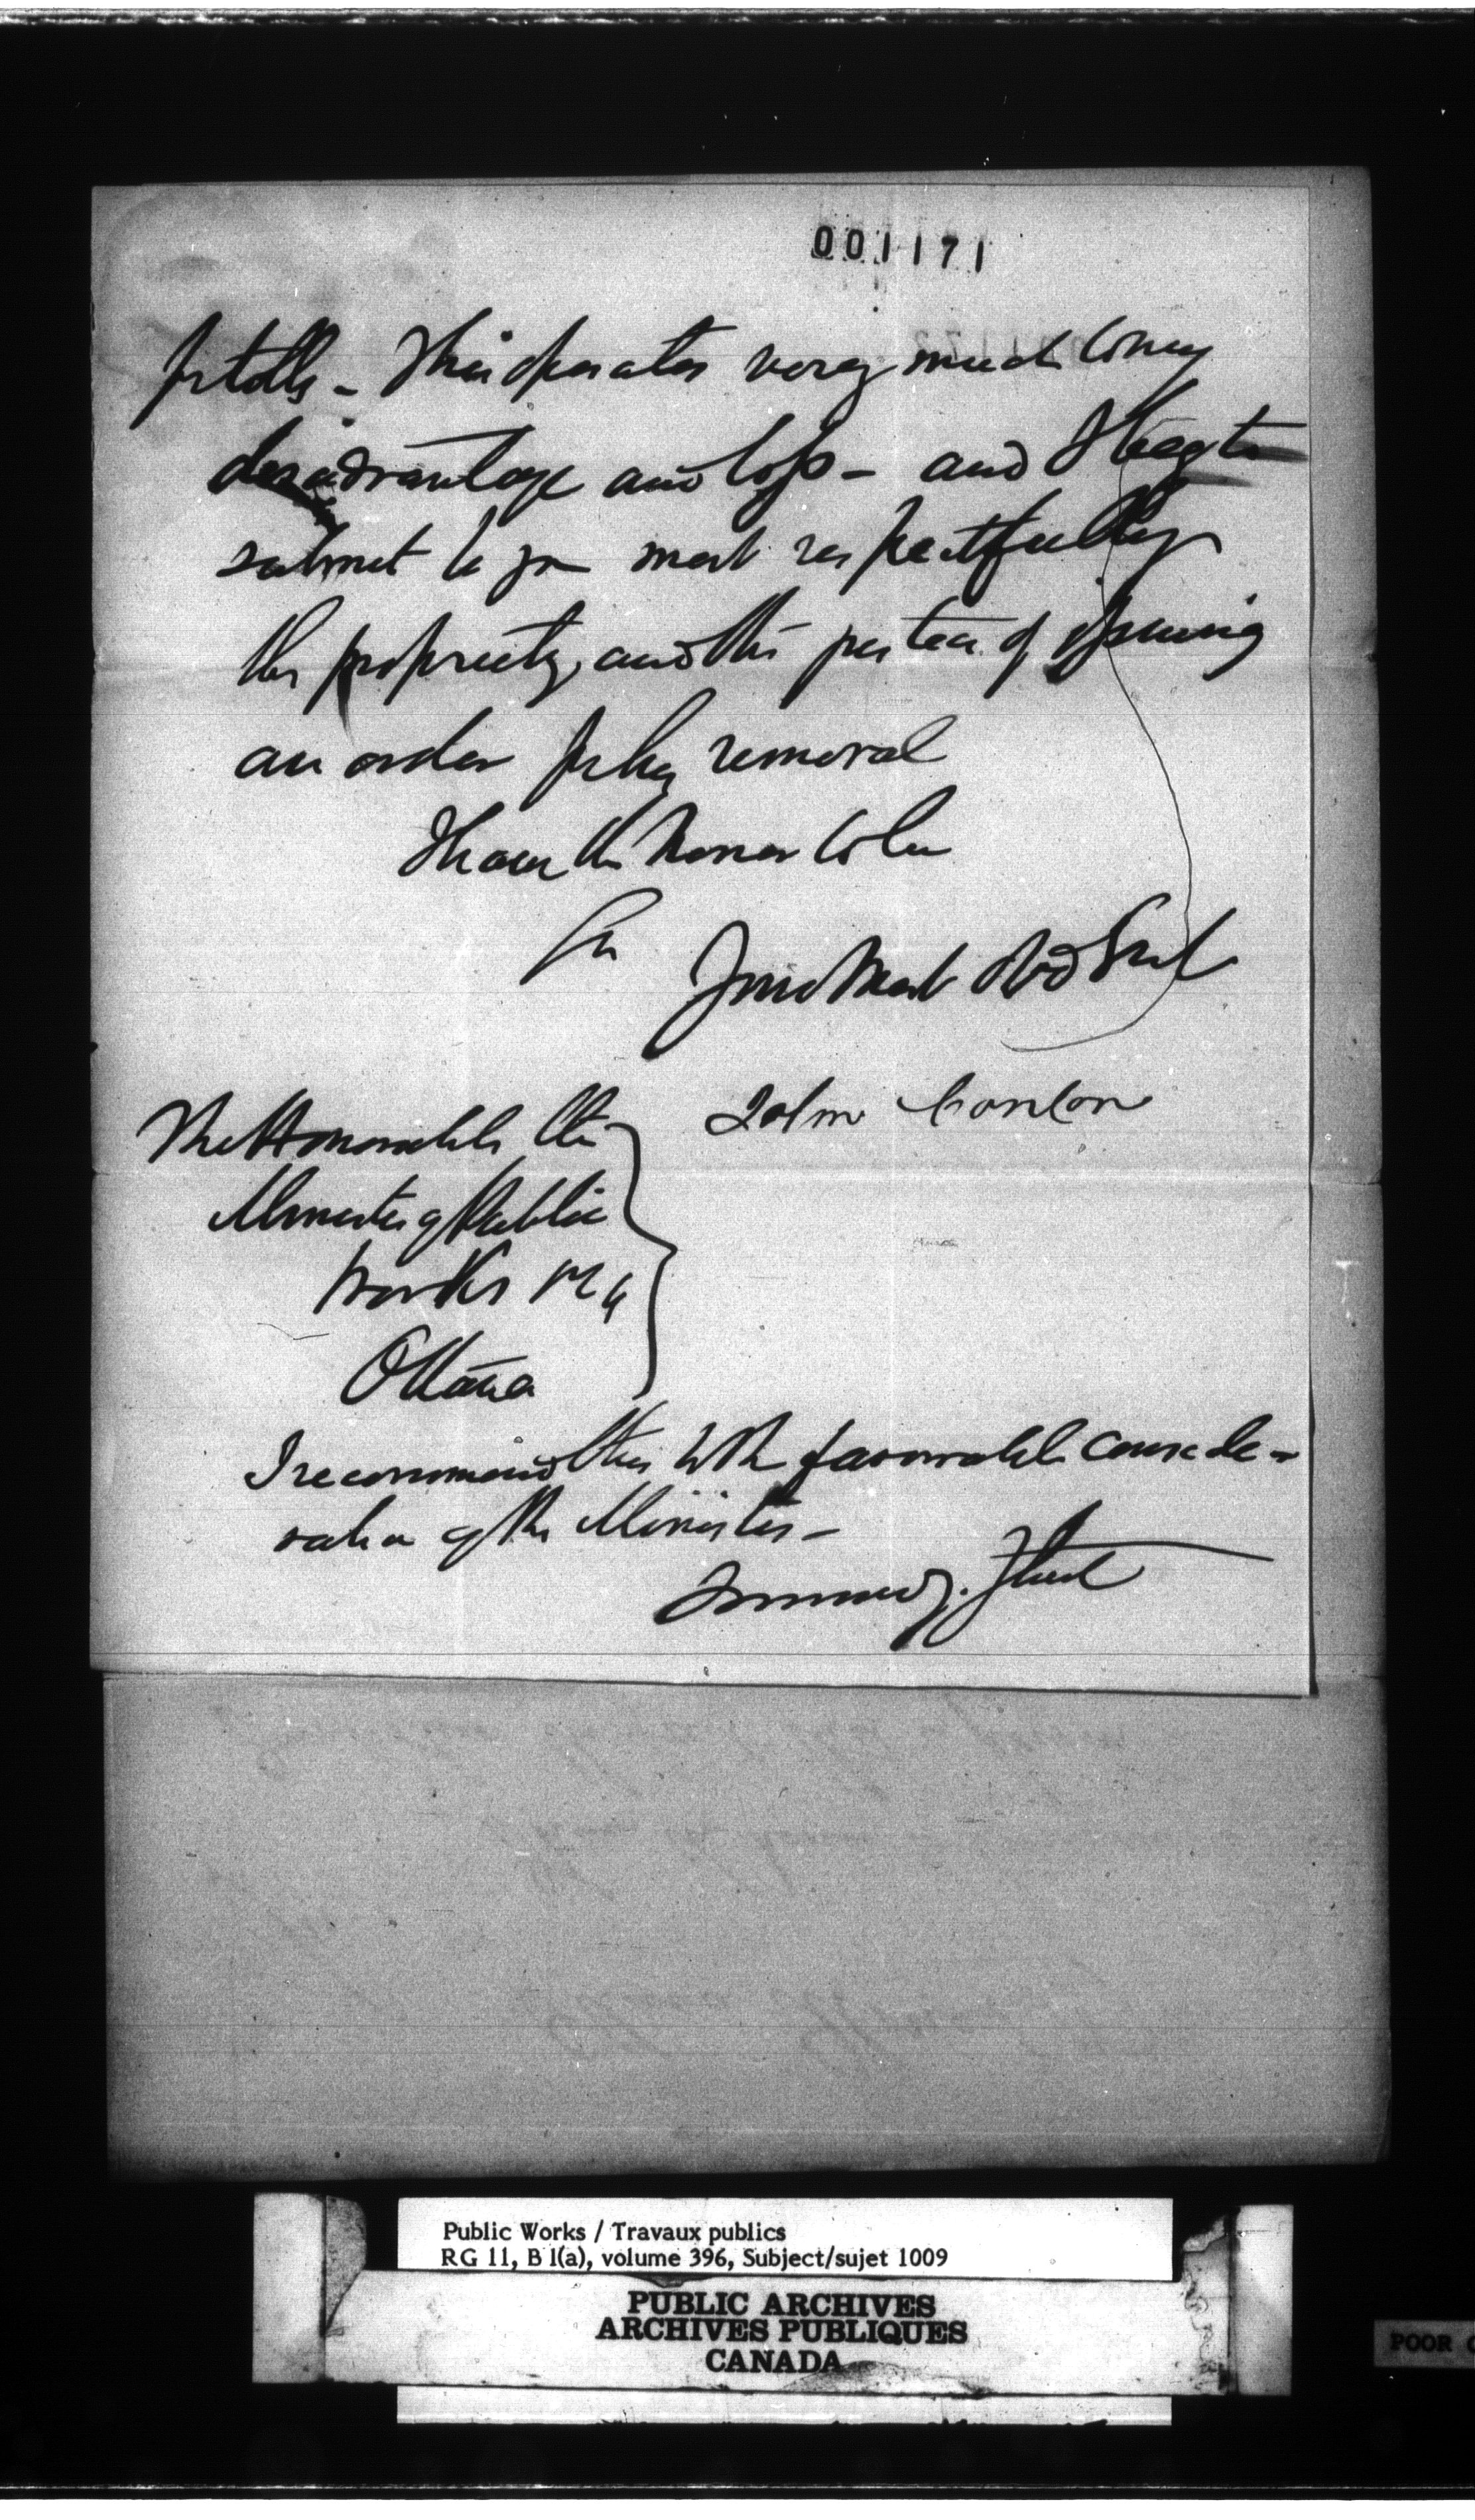 001171
for tolls - This operates very much to my
disadvantage and loss - and I beg to
submit to you most respectfully
the propriety, and the justice of issuing
an order for her removal
I have the honor to be
Sir
Your Most Obd Servt
John Conlon
The Honorable the
Minister of Public
Works &c
Ottawa
I recommend this to the favorable conside-
ration of the Minister -
Public Works / Travaux publics
RG 11, B 1(a), volume 396, Subject/sujet 1009
PUBLIC ARCHIVES
ARCHIVES PUBLIQUES
CANADA
POOR